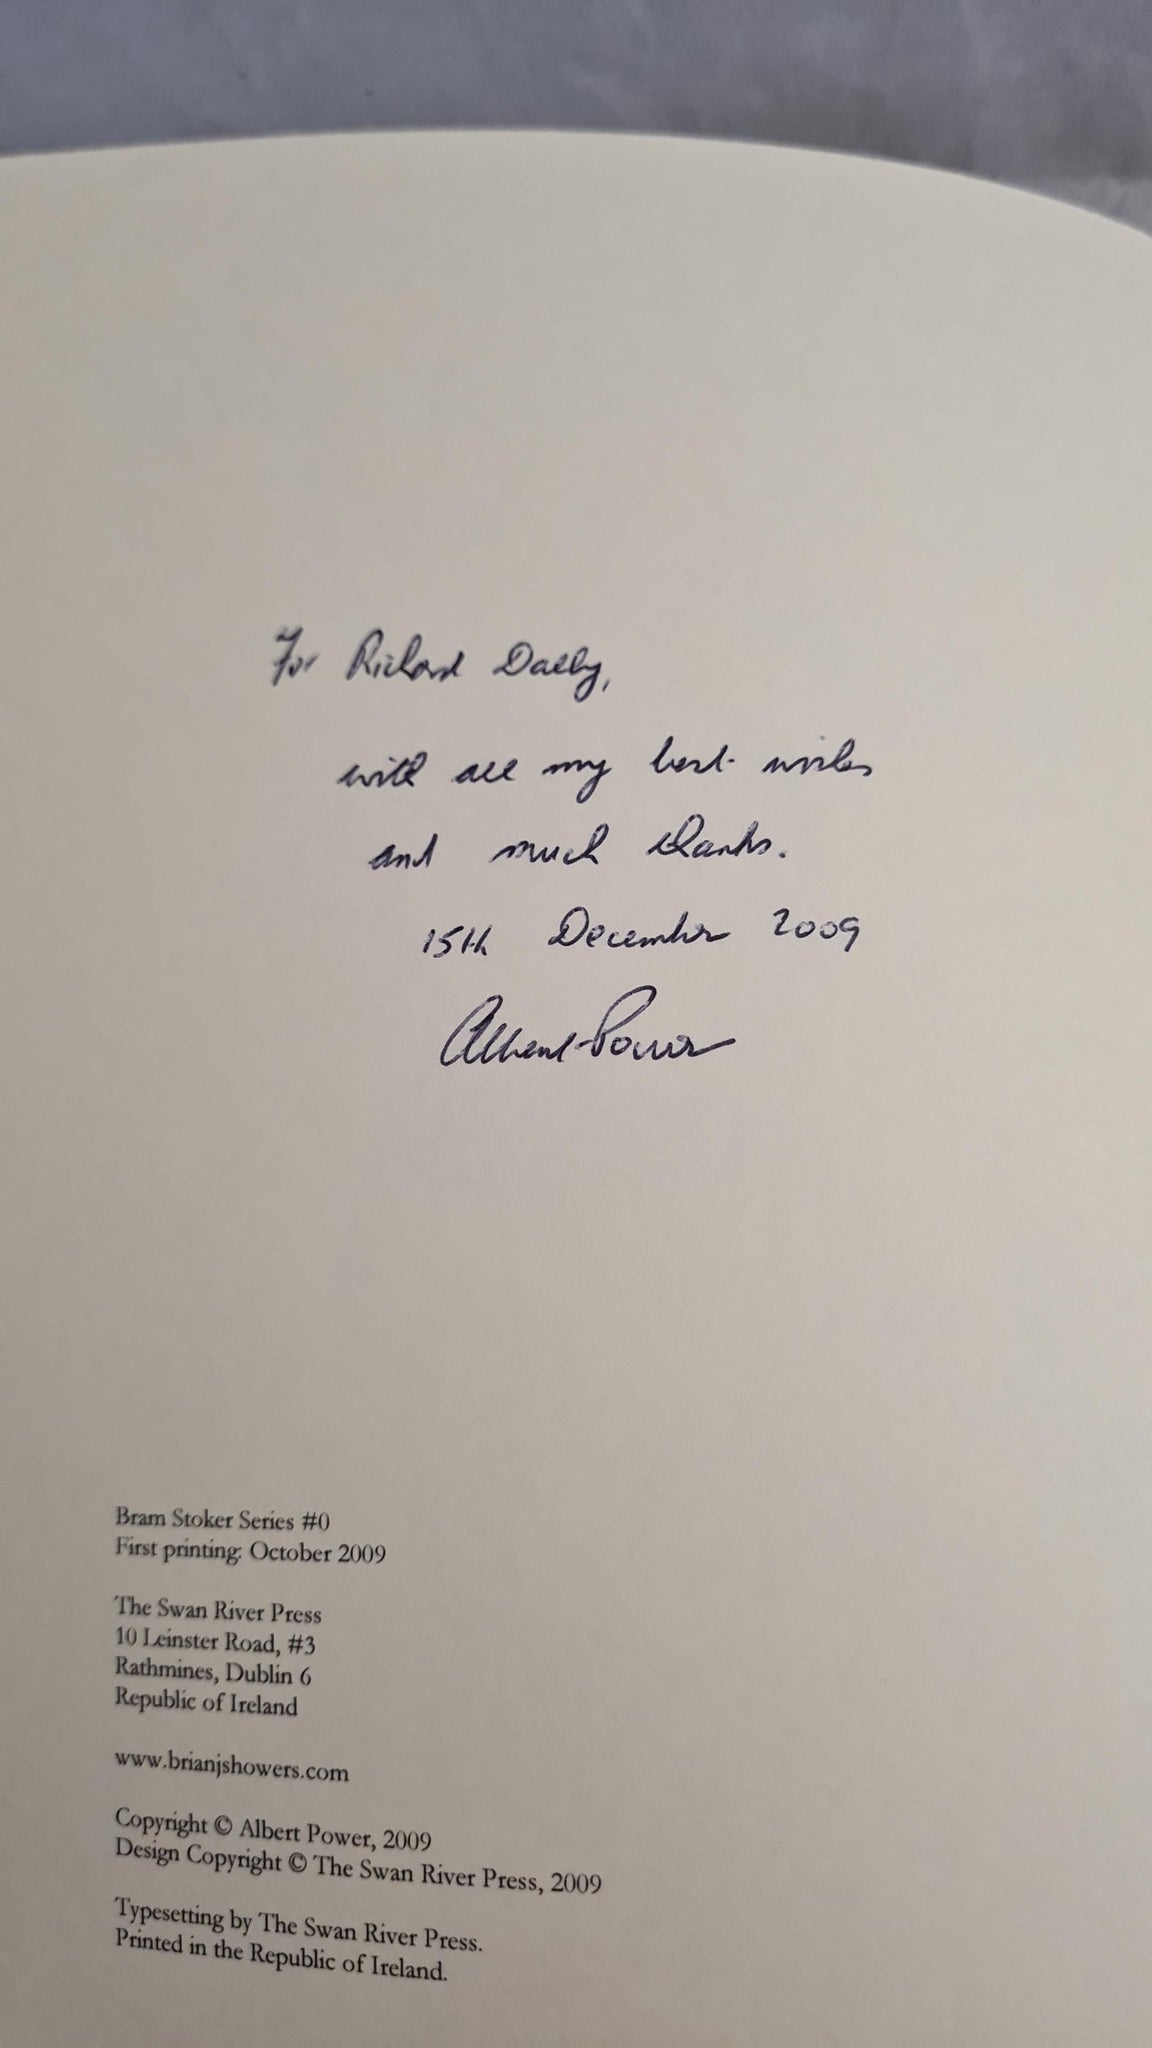 For Richard Dalby,
with all my best wishes
and much thanks.
15th December 2009
Albert Power
Bram Stoker Series #0
First printing: October 2009
The Swan River Press
10 Leinster Road, #3
Rathmines, Dublin 6
Republic of Ireland
www.brianjshowers.com
Copyright © Albert Power, 2009
Design Copyright © The Swan River Press, 2009
Typesetting by The Swan River Press.
Printed in the Republic of Ireland.